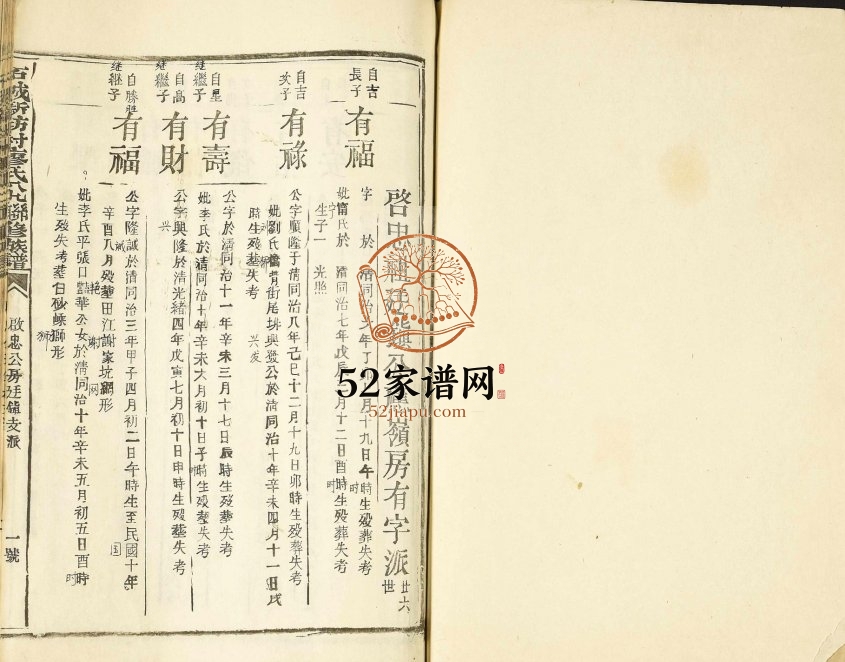 啓忠 公 嶺房有字派 廿六世
自吉長子 有福
字 於清同治 年丁 月十九日午時生殁葬失考
妣甯氏於清同治七年戊辰 月十二日酉時生殁葬失考
生子一 光照
自吉次子 有祿
公字順隆于清同治八年己巳十二月十九日卯時生殁葬失考
妣劉氏 背街尾排興發公於清同治十年辛未四月十一日戌
時生殁葬失考
自星继繼子 有壽
公字於清同治十一年辛未三月十七日辰時生殁葬失考
妣李氏於清同治十年辛未六月初十日子時生殁葬失考
自高继繼子 有財
公字興隆於清光緒四年戊寅七月初十日申時生殁葬失考
自勝继繼子 有福
公字隆誠於清同治三年甲子四月初二日午時生至民國十年
辛酉八月殁葬田江謝家坑網形
妣李氏平張口 華公女於清同治十年辛未五月初五日酉時
生殁失考葬 獅形
石城 村廖氏八九聯修族譜
啟忠公房廷 支派
一號
52家谱网
52jiapu.com